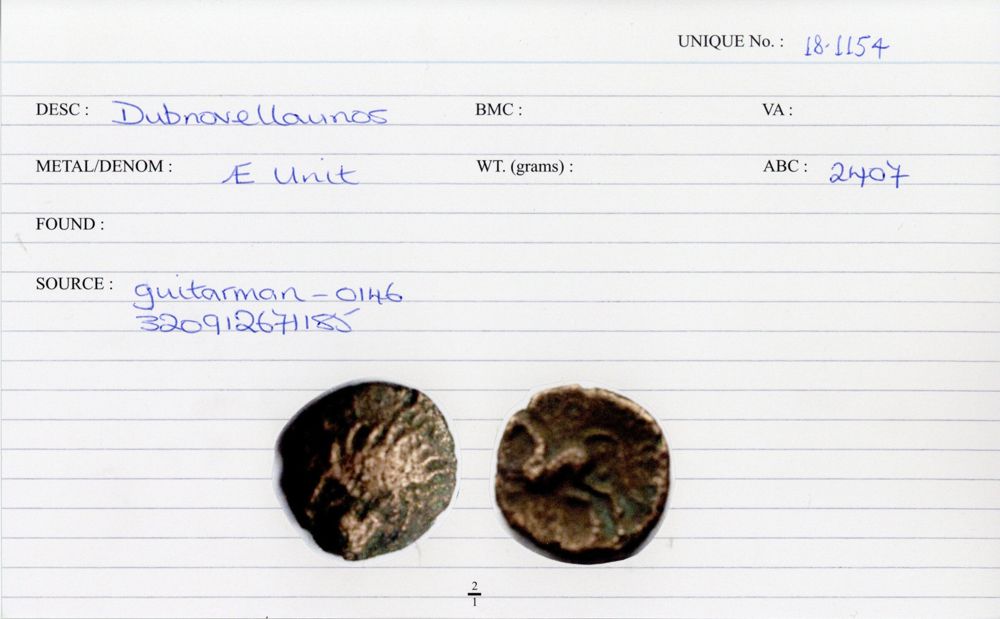 UNIQUE No. : 18.1154
DESC : Dubnovellaunos BMC : VA :
METAL/DENOM : Æ Unit WT. (grams) : ABC : 2407
FOUND :
SOURCE : guitarman-0146
320912671185
2
1